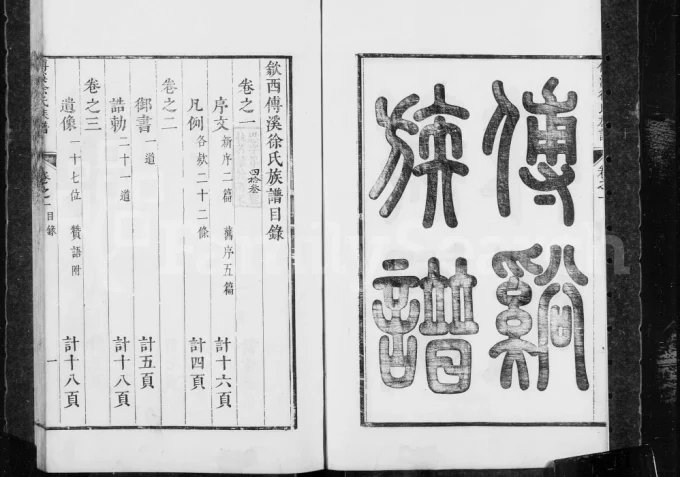 傅谿
族譜
歙西傅溪徐氏族譜目錄
卷之一
序文 新序二篇 舊序五篇 計十六頁
凡例 各款二十二條 計四頁
卷之二
御書 一道 計五頁
誥勅 二十一道 計十八頁
卷之三
遺像 一十七位 贊語附 計十八頁
卷之一 目錄 一